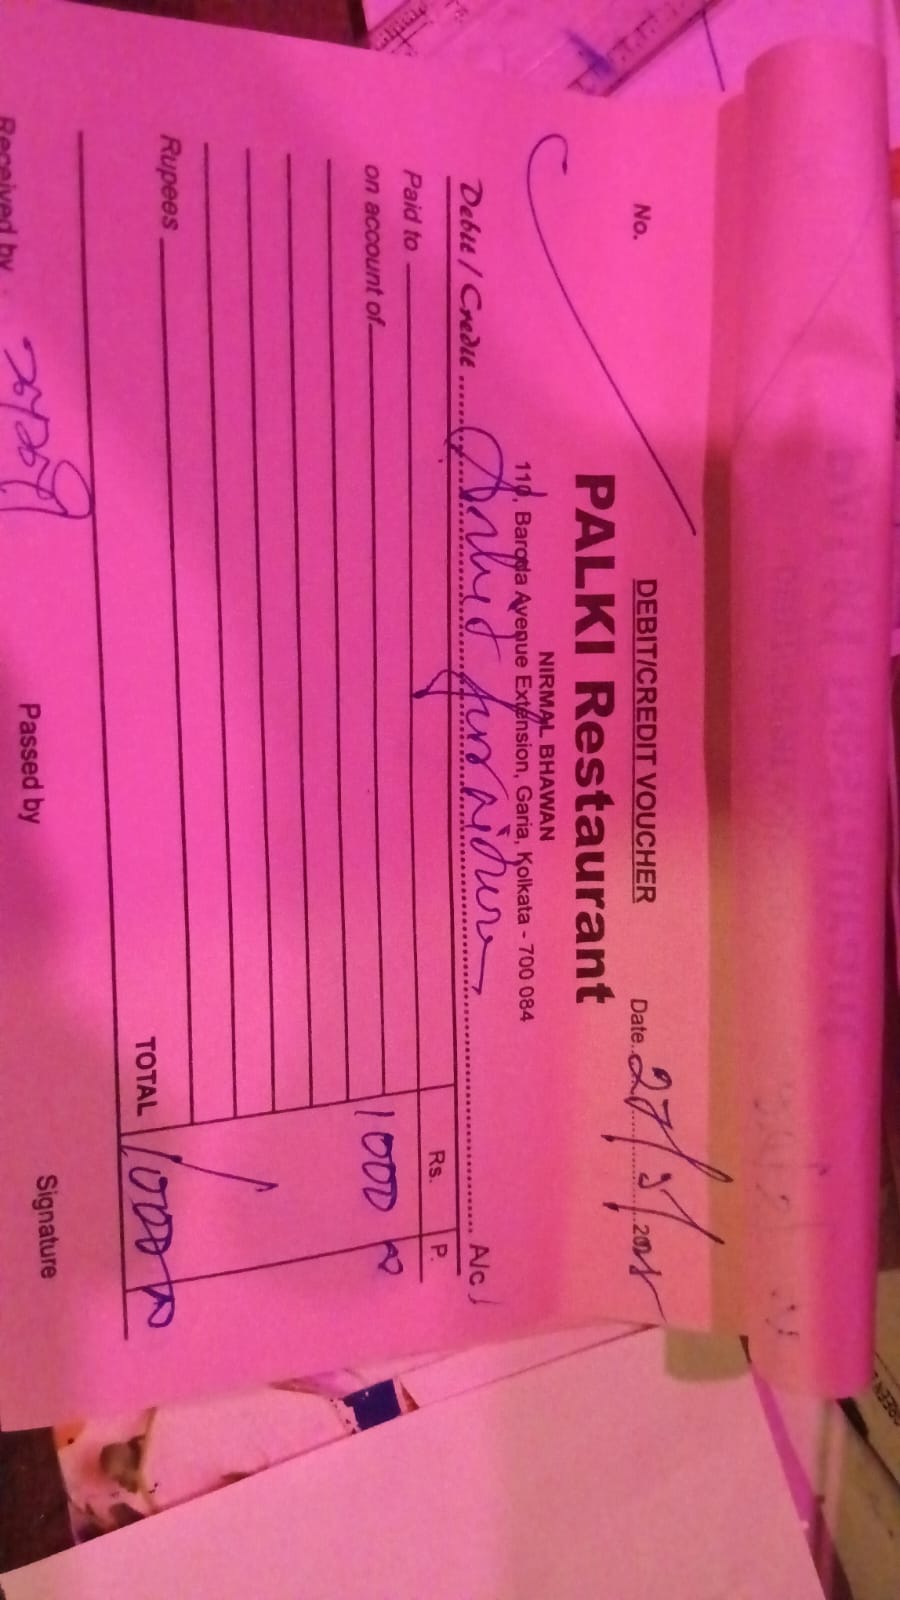 DEBIT/CREDIT VOUCHER
No. Date 27/5/2025
PALKI Restaurant
NIRMAL BHAWAN
110, Baroda Avenue Extension, Garia, Kolkata - 700 084
Debit / Credit A/c
Paid to Rs. P.
on account of 1000
Rupees
TOTAL 1000
Received by Passed by Signature